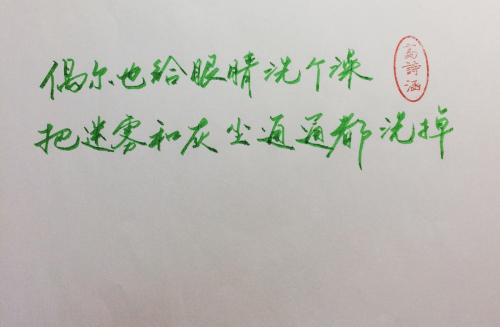 偶尔也给眼睛洗个澡
把迷雾和灰尘通通都洗掉
高詩涵